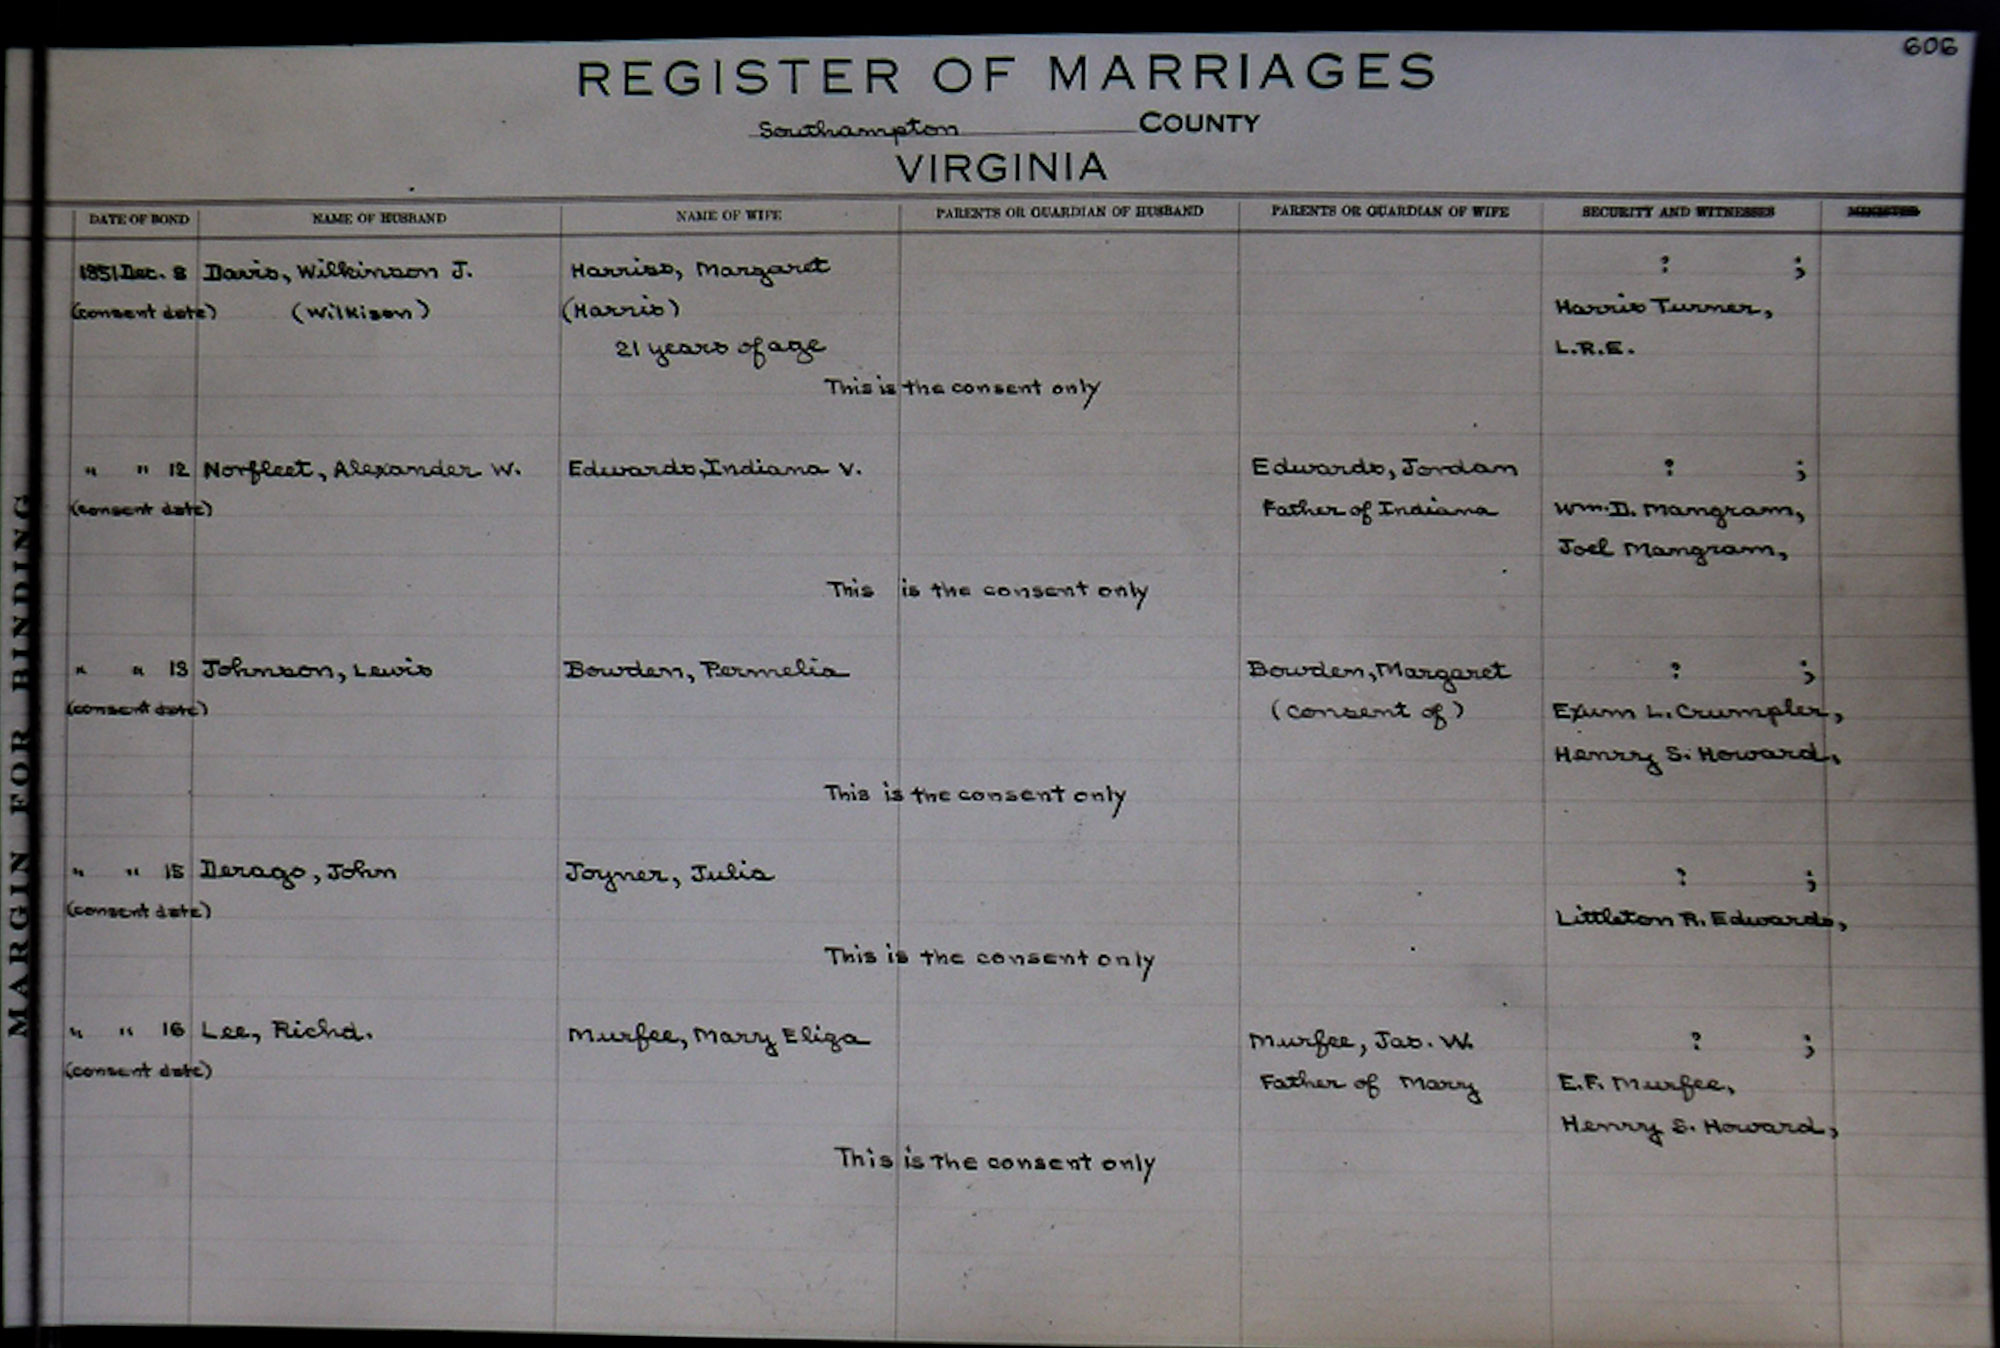 606
REGISTER OF MARRIAGES
Southampton COUNTY
VIRGINIA
DATE OF BOND NAME OF HUSBAND NAME OF WIFE PARENTS OR GUARDIAN OF HUSBAND PARENTS OR GUARDIAN OF WIFE SECURITY AND WITNESSES MINISTER
1851 Dec. 8 Davis, Wilkinson J. Harriss, Margaret ? ;
(consent date) (Wilkison) (Harris) Harris Turner,
21 years of age L.R.E.
This is the consent only
" " 12 Norfleet, Alexander W. Edwards, Indiana V. Edwards, Jordan ? ;
(consent date) Father of Indiana Wm. D. Mangram,
Joel Mangram,
This is the consent only
" " 13 Johnson, Lewis Bowden, Permelia Bowden, Margaret ? ;
(consent date) (consent of) Exum L. Crumpler,
Henry S. Howard,
This is the consent only
" " 15 Derago, John Joyner, Julia ? ;
(consent date) Littleton R. Edwards,
This is the consent only
" " 16 Lee, Richd. Murfee, Mary Eliza Murfee, Jas. W. ? ;
(consent date) Father of Mary E.F. Murfee,
Henry S. Howard,
This is the consent only
MARGIN FOR BINDING